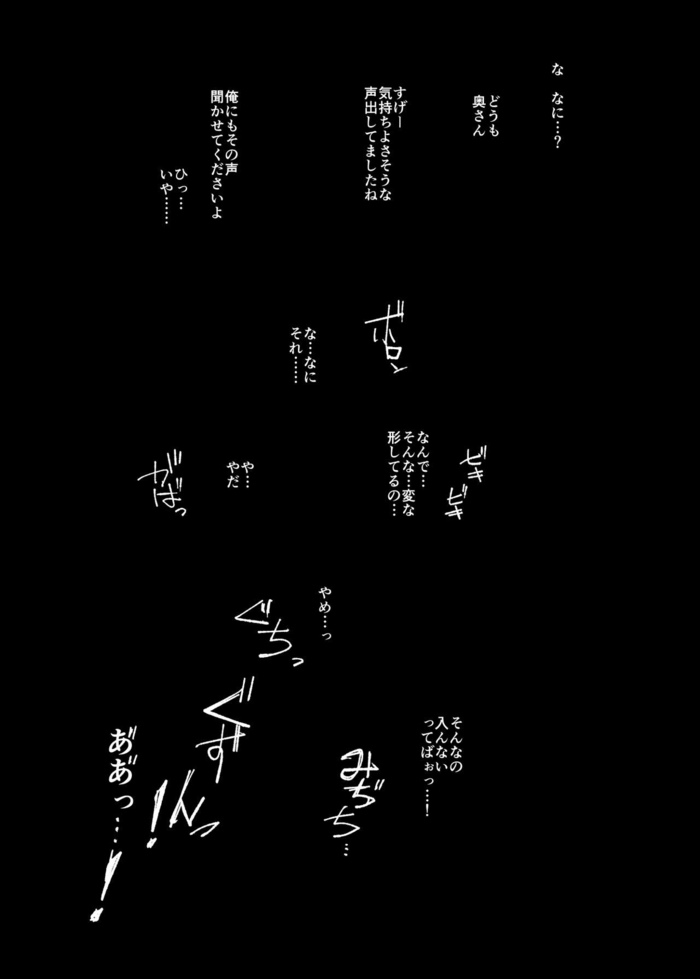 な　なに…?
どうも
奥さん
すげー
気持ちよさそうな
声出してましたね
俺にもその声
聞かせてくださいよ
ひっ…
いや……
ボロン
な…なに
それ……
ビキ
ビキ
なんで…
そんな…変な
形してるの…
や…
やだ
がばっ
やめ…っ
ぐちっ
そんなの
入んない
ってばぉっ…!
みぢち…
ぐずんっ!
あ゙あ゙っ…!